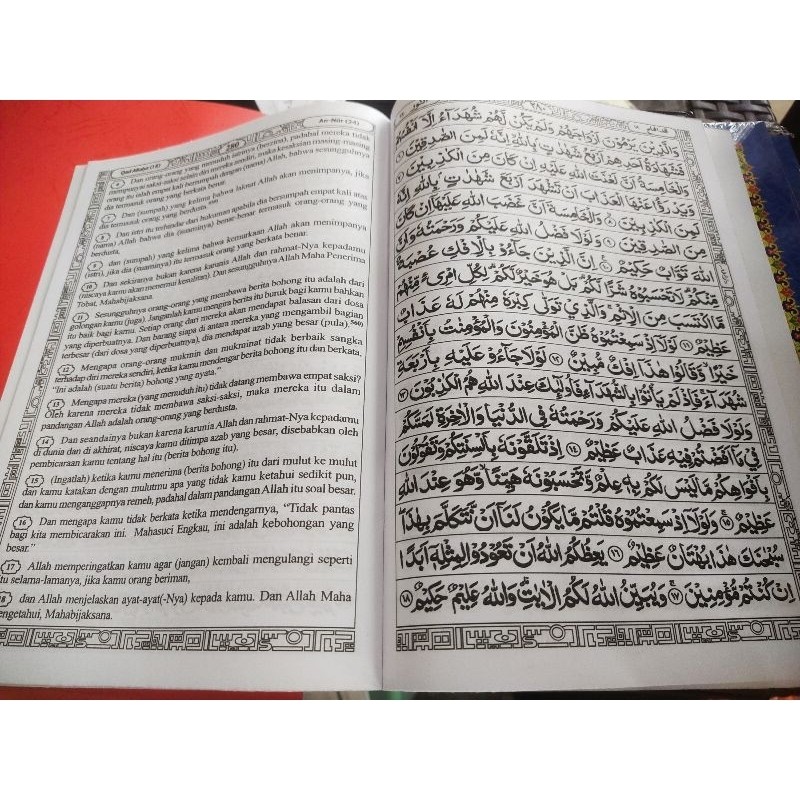 Qad Aflaha (18)
280
An-Nūr (24)
6 Dan orang-orang yang menuduh istrinya (berzina), padahal mereka tidak
mempunyai saksi-saksi selain diri mereka sendiri, maka kesaksian masing-masing
orang itu ialah empat kali bersumpah dengan (nama) Allah, bahwa sesungguhnya
dia termasuk orang yang berkata benar.
7 Dan (sumpah) yang kelima bahwa laknat Allah akan menimpanya, jika
dia termasuk orang yang berdusta.
8 Dan istri itu terhindar dari hukuman apabila dia bersumpah empat kali atas
(nama) Allah bahwa dia (suaminya) benar-benar termasuk orang-orang yang
berdusta,
9 dan (sumpah) yang kelima bahwa kemurkaan Allah akan menimpanya
(istri), jika dia (suaminya) itu termasuk orang yang berkata benar.
10 Dan sekiranya bukan karena karunia Allah dan rahmat-Nya kepadamu
(niscaya kamu akan menemui kesulitan). Dan sesungguhnya Allah Maha Penerima
Tobat, Mahabijaksana.
11 Sesungguhnya orang-orang yang membawa berita bohong itu adalah dari
golongan kamu (juga). Janganlah kamu mengira berita itu buruk bagi kamu bahkan
itu baik bagi kamu. Setiap orang dari mereka akan mendapat balasan dari dosa
yang diperbuatnya. Dan barang siapa di antara mereka yang mengambil bagian
terbesar (dari dosa yang diperbuatnya), dia mendapat azab yang besar (pula).
12 Mengapa orang-orang mukmin dan mukminat tidak berbaik sangka
terhadap diri mereka sendiri, ketika kamu mendengar berita bohong itu dan berkata,
"Ini adalah (suatu berita) bohong yang nyata."
13 Mengapa mereka (yang menuduh itu) tidak datang membawa empat saksi?
Oleh karena mereka tidak membawa saksi-saksi, maka mereka itu dalam
pandangan Allah adalah orang-orang yang berdusta.
14 Dan seandainya bukan karena karunia Allah dan rahmat-Nya kepadamu
di dunia dan di akhirat, niscaya kamu ditimpa azab yang besar, disebabkan oleh
pembicaraan kamu tentang hal itu (berita bohong itu).
15 (Ingatlah) ketika kamu menerima (berita bohong) itu dari mulut ke mulut
dan kamu katakan dengan mulutmu apa yang tidak kamu ketahui sedikit pun,
dan kamu menganggapnya remeh, padahal dalam pandangan Allah itu soal besar.
16 Dan mengapa kamu tidak berkata ketika mendengarnya, "Tidak pantas
bagi kita membicarakan ini. Mahasuci Engkau, ini adalah kebohongan yang
besar."
17 Allah memperingatkan kamu agar (jangan) kembali mengulangi seperti
itu selama-lamanya, jika kamu orang beriman,
18 dan Allah menjelaskan ayat-ayat(-Nya) kepada kamu. Dan Allah Maha
mengetahui, Mahabijaksana.
٢٨٠
وَالَّذِيْنَ يَرْمُوْنَ اَزْوَاجَهُمْ وَلَمْ يَكُنْ لَّهُمْ شُهَدَاۤءُ اِلَّآ اَنْفُسُهُمْ
فَشَهَادَةُ اَحَدِهِمْ اَرْبَعُ شَهٰدٰتٍۢ بِاللّٰهِ اِنَّهٗ لَمِنَ الصّٰدِقِيْنَ ٦
وَالْخَامِسَةُ اَنَّ لَعْنَتَ اللّٰهِ عَلَيْهِ اِنْ كَانَ مِنَ الْكٰذِبِيْنَ ٧
وَيَدْرَؤُا عَنْهَا الْعَذَابَ اَنْ تَشْهَدَ اَرْبَعَ شَهٰدٰتٍۢ بِاللّٰهِ اِنَّهٗ
لَمِنَ الْكٰذِبِيْنَ ٨ وَالْخَامِسَةَ اَنَّ غَضَبَ اللّٰهِ عَلَيْهَآ اِنْ كَانَ
مِنَ الصّٰدِقِيْنَ ٩ وَلَوْلَا فَضْلُ اللّٰهِ عَلَيْكُمْ وَرَحْمَتُهٗ وَاَنَّ
اللّٰهَ تَوَّابٌ حَكِيْمٌ ١٠ اِنَّ الَّذِيْنَ جَاۤءُوْ بِالْاِفْكِ عُصْبَةٌ
مِّنْكُمْ لَا تَحْسَبُوْهُ شَرًّا لَّكُمْ بَلْ هُوَ خَيْرٌ لَّكُمْ لِكُلِّ امْرِئٍ مِّنْهُمْ
مَّا اكْتَسَبَ مِنَ الْاِثْمِ وَالَّذِيْ تَوَلّٰى كِبْرَهٗ مِنْهُمْ لَهٗ عَذَابٌ
عَظِيْمٌ ١١ لَوْلَآ اِذْ سَمِعْتُمُوْهُ ظَنَّ الْمُؤْمِنُوْنَ وَالْمُؤْمِنٰتُ بِاَنْفُسِهِمْ
خَيْرًا وَّقَالُوْا هٰذَآ اِفْكٌ مُّبِيْنٌ ١٢ لَوْلَا جَاۤءُوْ عَلَيْهِ بِاَرْبَعَةِ
شُهَدَاۤءَ فَاِذْ لَمْ يَأْتُوْا بِالشُّهَدَاۤءِ فَاُولٰۤىِٕكَ عِنْدَ اللّٰهِ هُمُ الْكٰذِبُوْنَ ١٣
وَلَوْلَا فَضْلُ اللّٰهِ عَلَيْكُمْ وَرَحْمَتُهٗ فِى الدُّنْيَا وَالْاٰخِرَةِ لَمَسَّكُمْ
فِيْ مَآ اَفَضْتُمْ فِيْهِ عَذَابٌ عَظِيْمٌ ١٤ اِذْ تَلَقَّوْنَهٗ بِاَلْسِنَتِكُمْ وَتَقُوْلُوْنَ
بِاَفْوَاهِكُمْ مَّا لَيْسَ لَكُمْ بِهٖ عِلْمٌ وَّتَحْسَبُوْنَهٗ هَيِّنًا وَّهُوَ عِنْدَ اللّٰهِ
عَظِيْمٌ ١٥ وَلَوْلَآ اِذْ سَمِعْتُمُوْهُ قُلْتُمْ مَّا يَكُوْنُ لَنَآ اَنْ نَّتَكَلَّمَ بِهٰذَا
سُبْحٰنَكَ هٰذَا بُهْتَانٌ عَظِيْمٌ ١٦ يَعِظُكُمُ اللّٰهُ اَنْ تَعُوْدُوْا لِمِثْلِهٖٓ اَبَدًا
اِنْ كُنْتُمْ مُّؤْمِنِيْنَ ١٧ وَيُبَيِّنُ اللّٰهُ لَكُمُ الْاٰيٰتِ وَاللّٰهُ عَلِيْمٌ حَكِيْمٌ ١٨